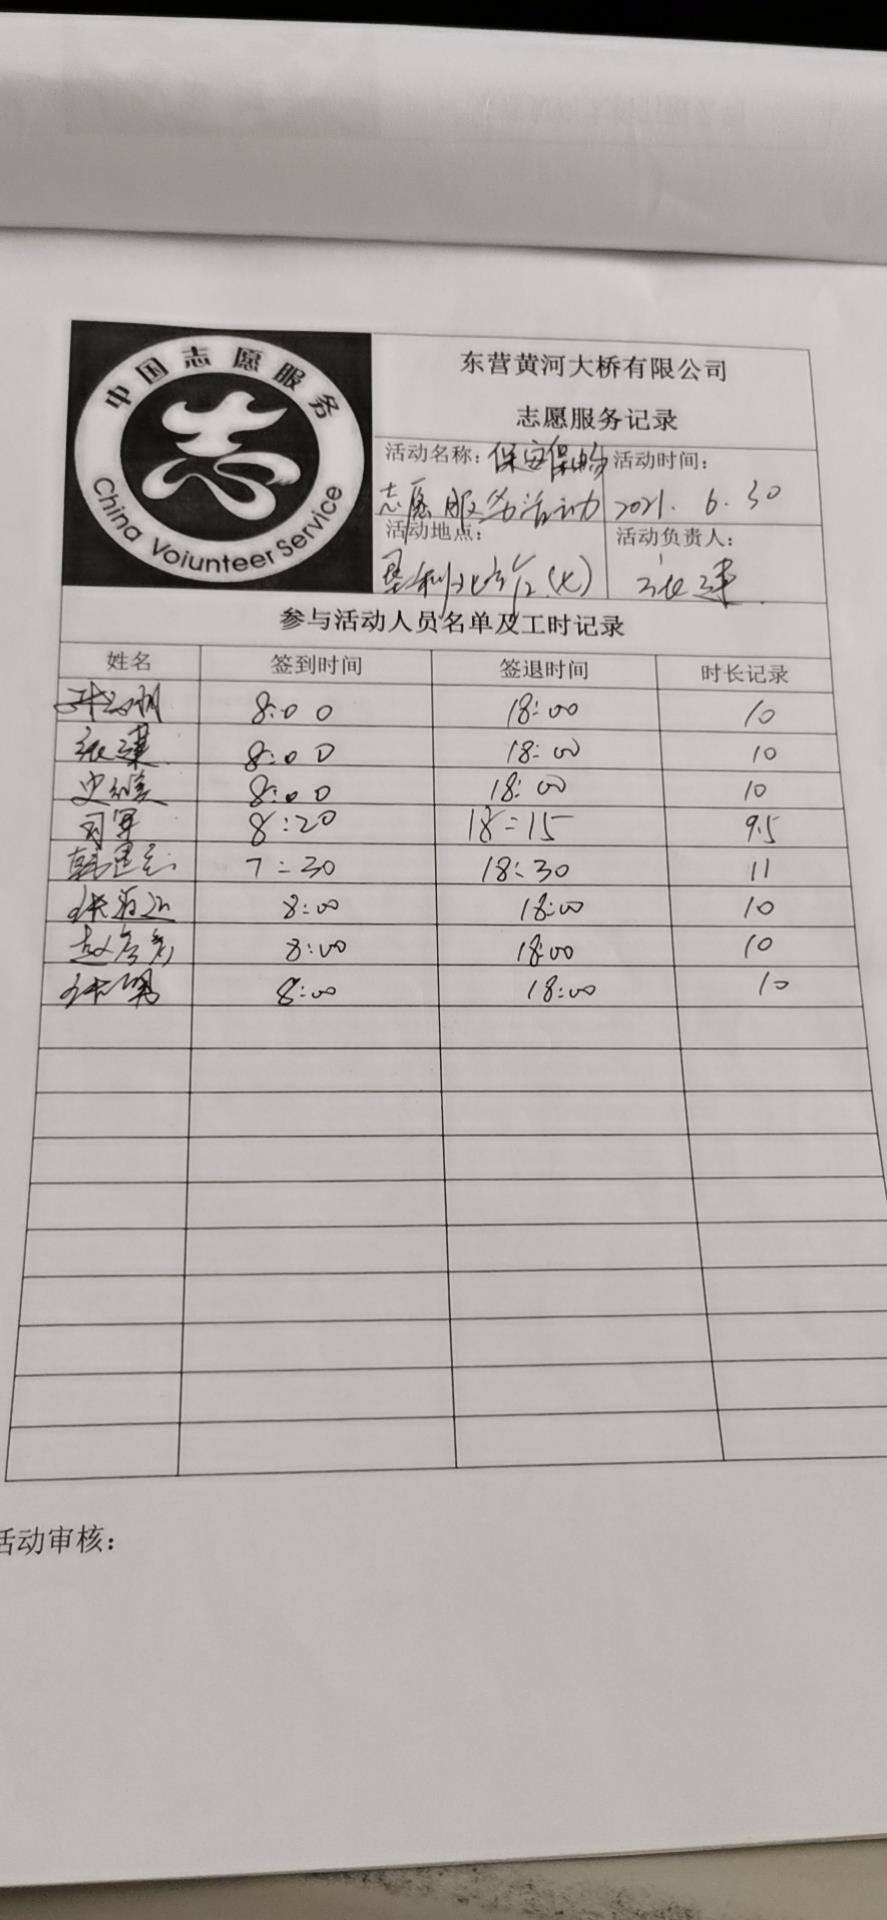 中国志愿服务
China Voiunteer Service
东营黄河大桥有限公司
志愿服务记录
活动名称：保安保畅
志愿服务活动
活动时间：
2021. 6. 30
活动地点：
垦利
活动负责人：
张建
参与活动人员名单及工时记录
姓名 签到时间 签退时间 时长记录
8:00 18:00 10
张建 8:00 18:00 10
史 8:00 18:00 10
司军 8:20 18:15 9.5
韩 7:30 18:30 11
张 8:00 18:00 10
赵 8:00 18:00 10
张 8:00 18:00 10
活动审核：